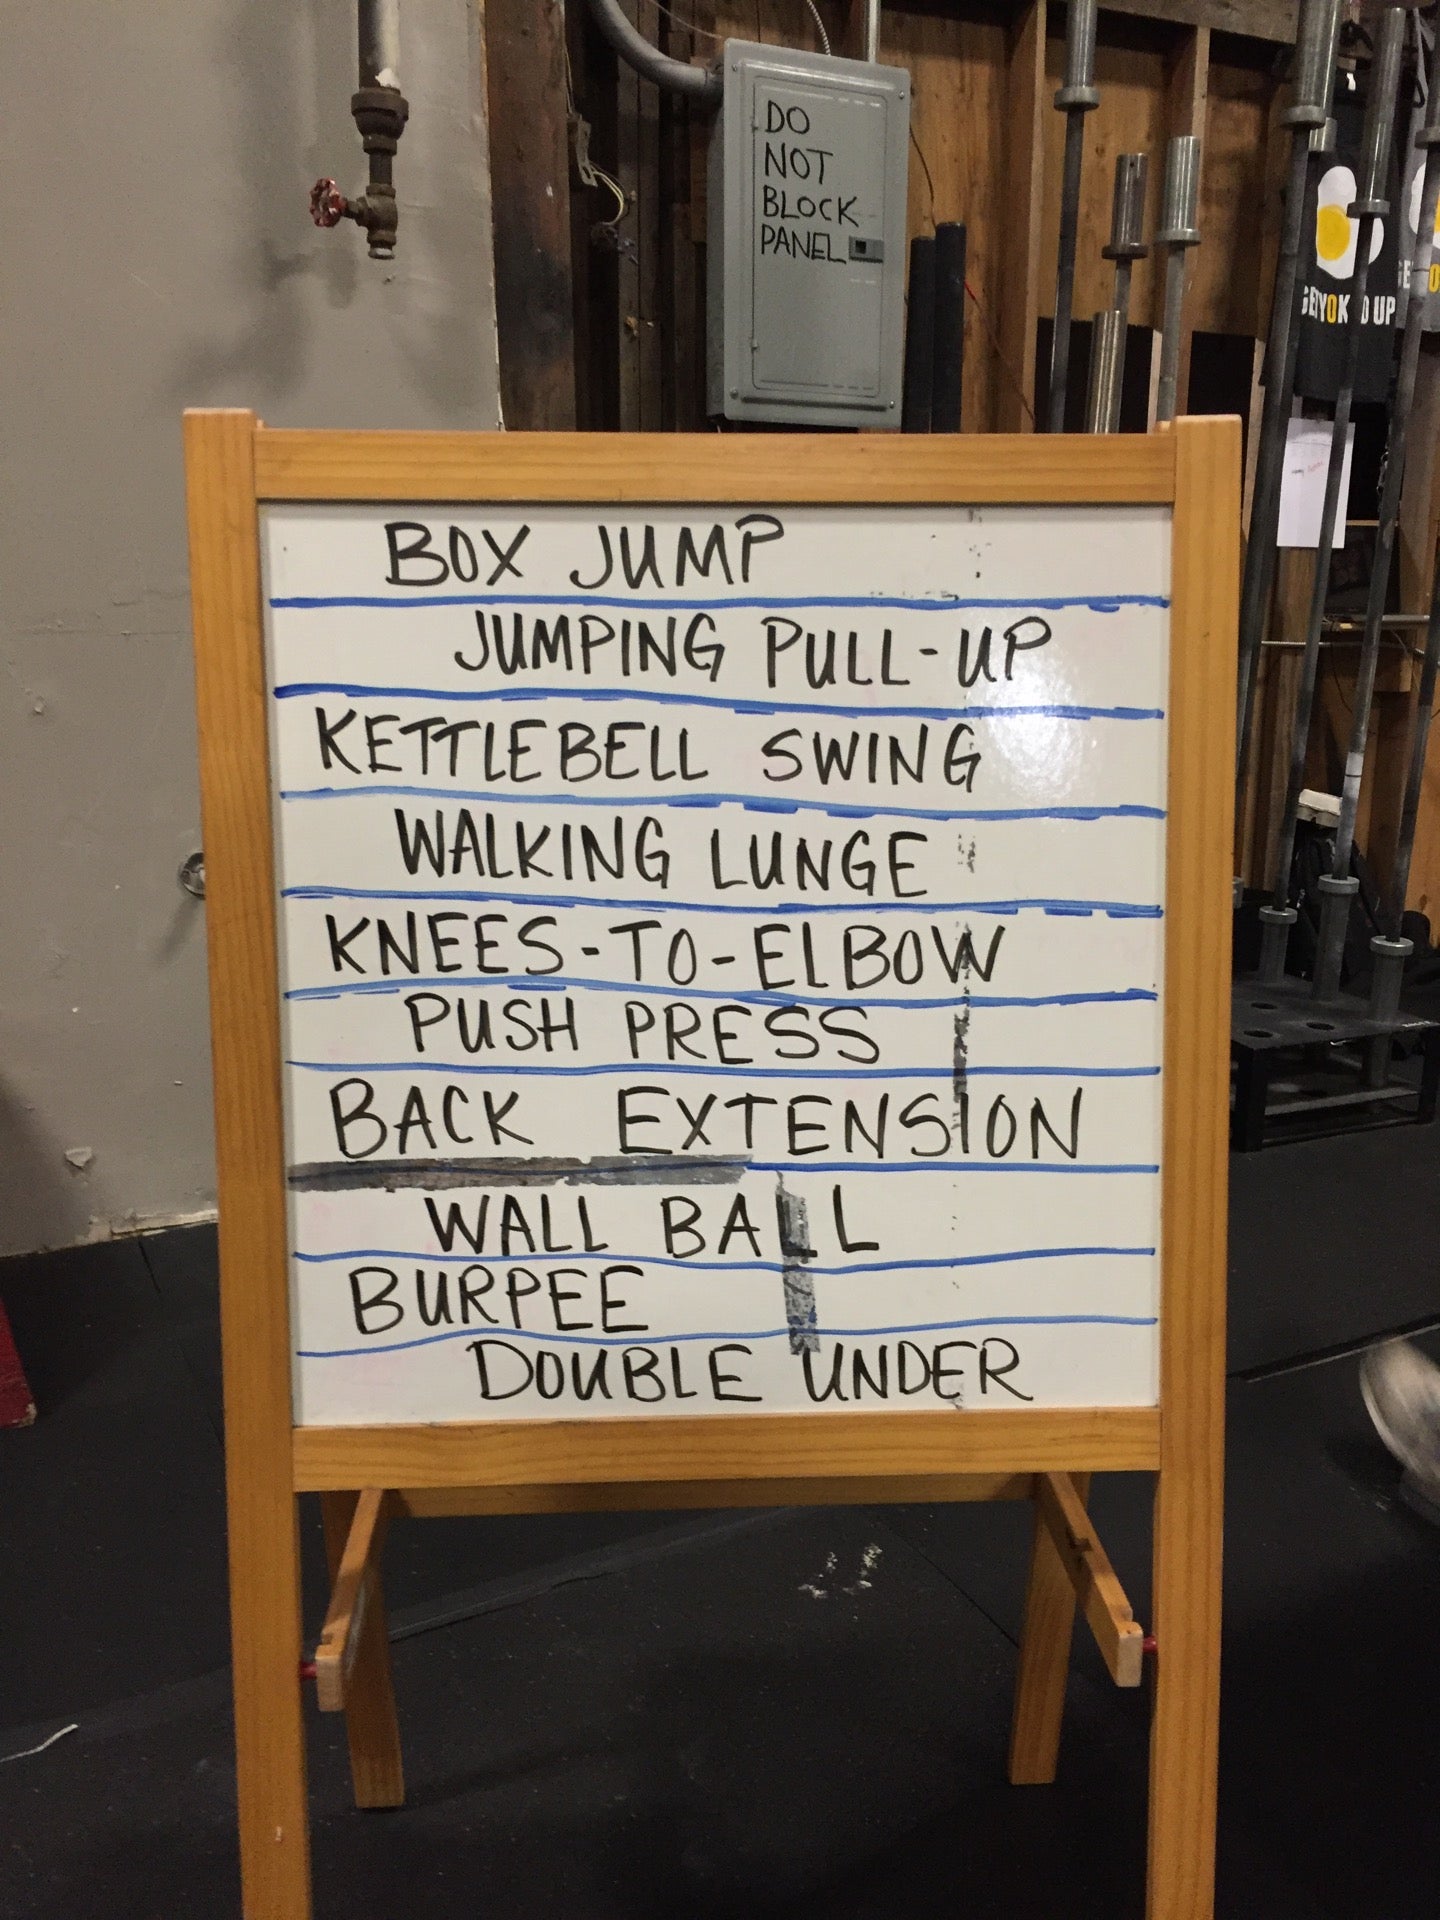 DO
NOT
BLOCK
PANEL
UP
BOX JUMP
JUMPING PULL-UP
KETTLEBELL SWING
WALKING LUNGE
KNEES-TO-ELBOW
PUSH PRESS
BACK EXTENSION
WALL BALL
BURPEE
DOUBLE UNDER